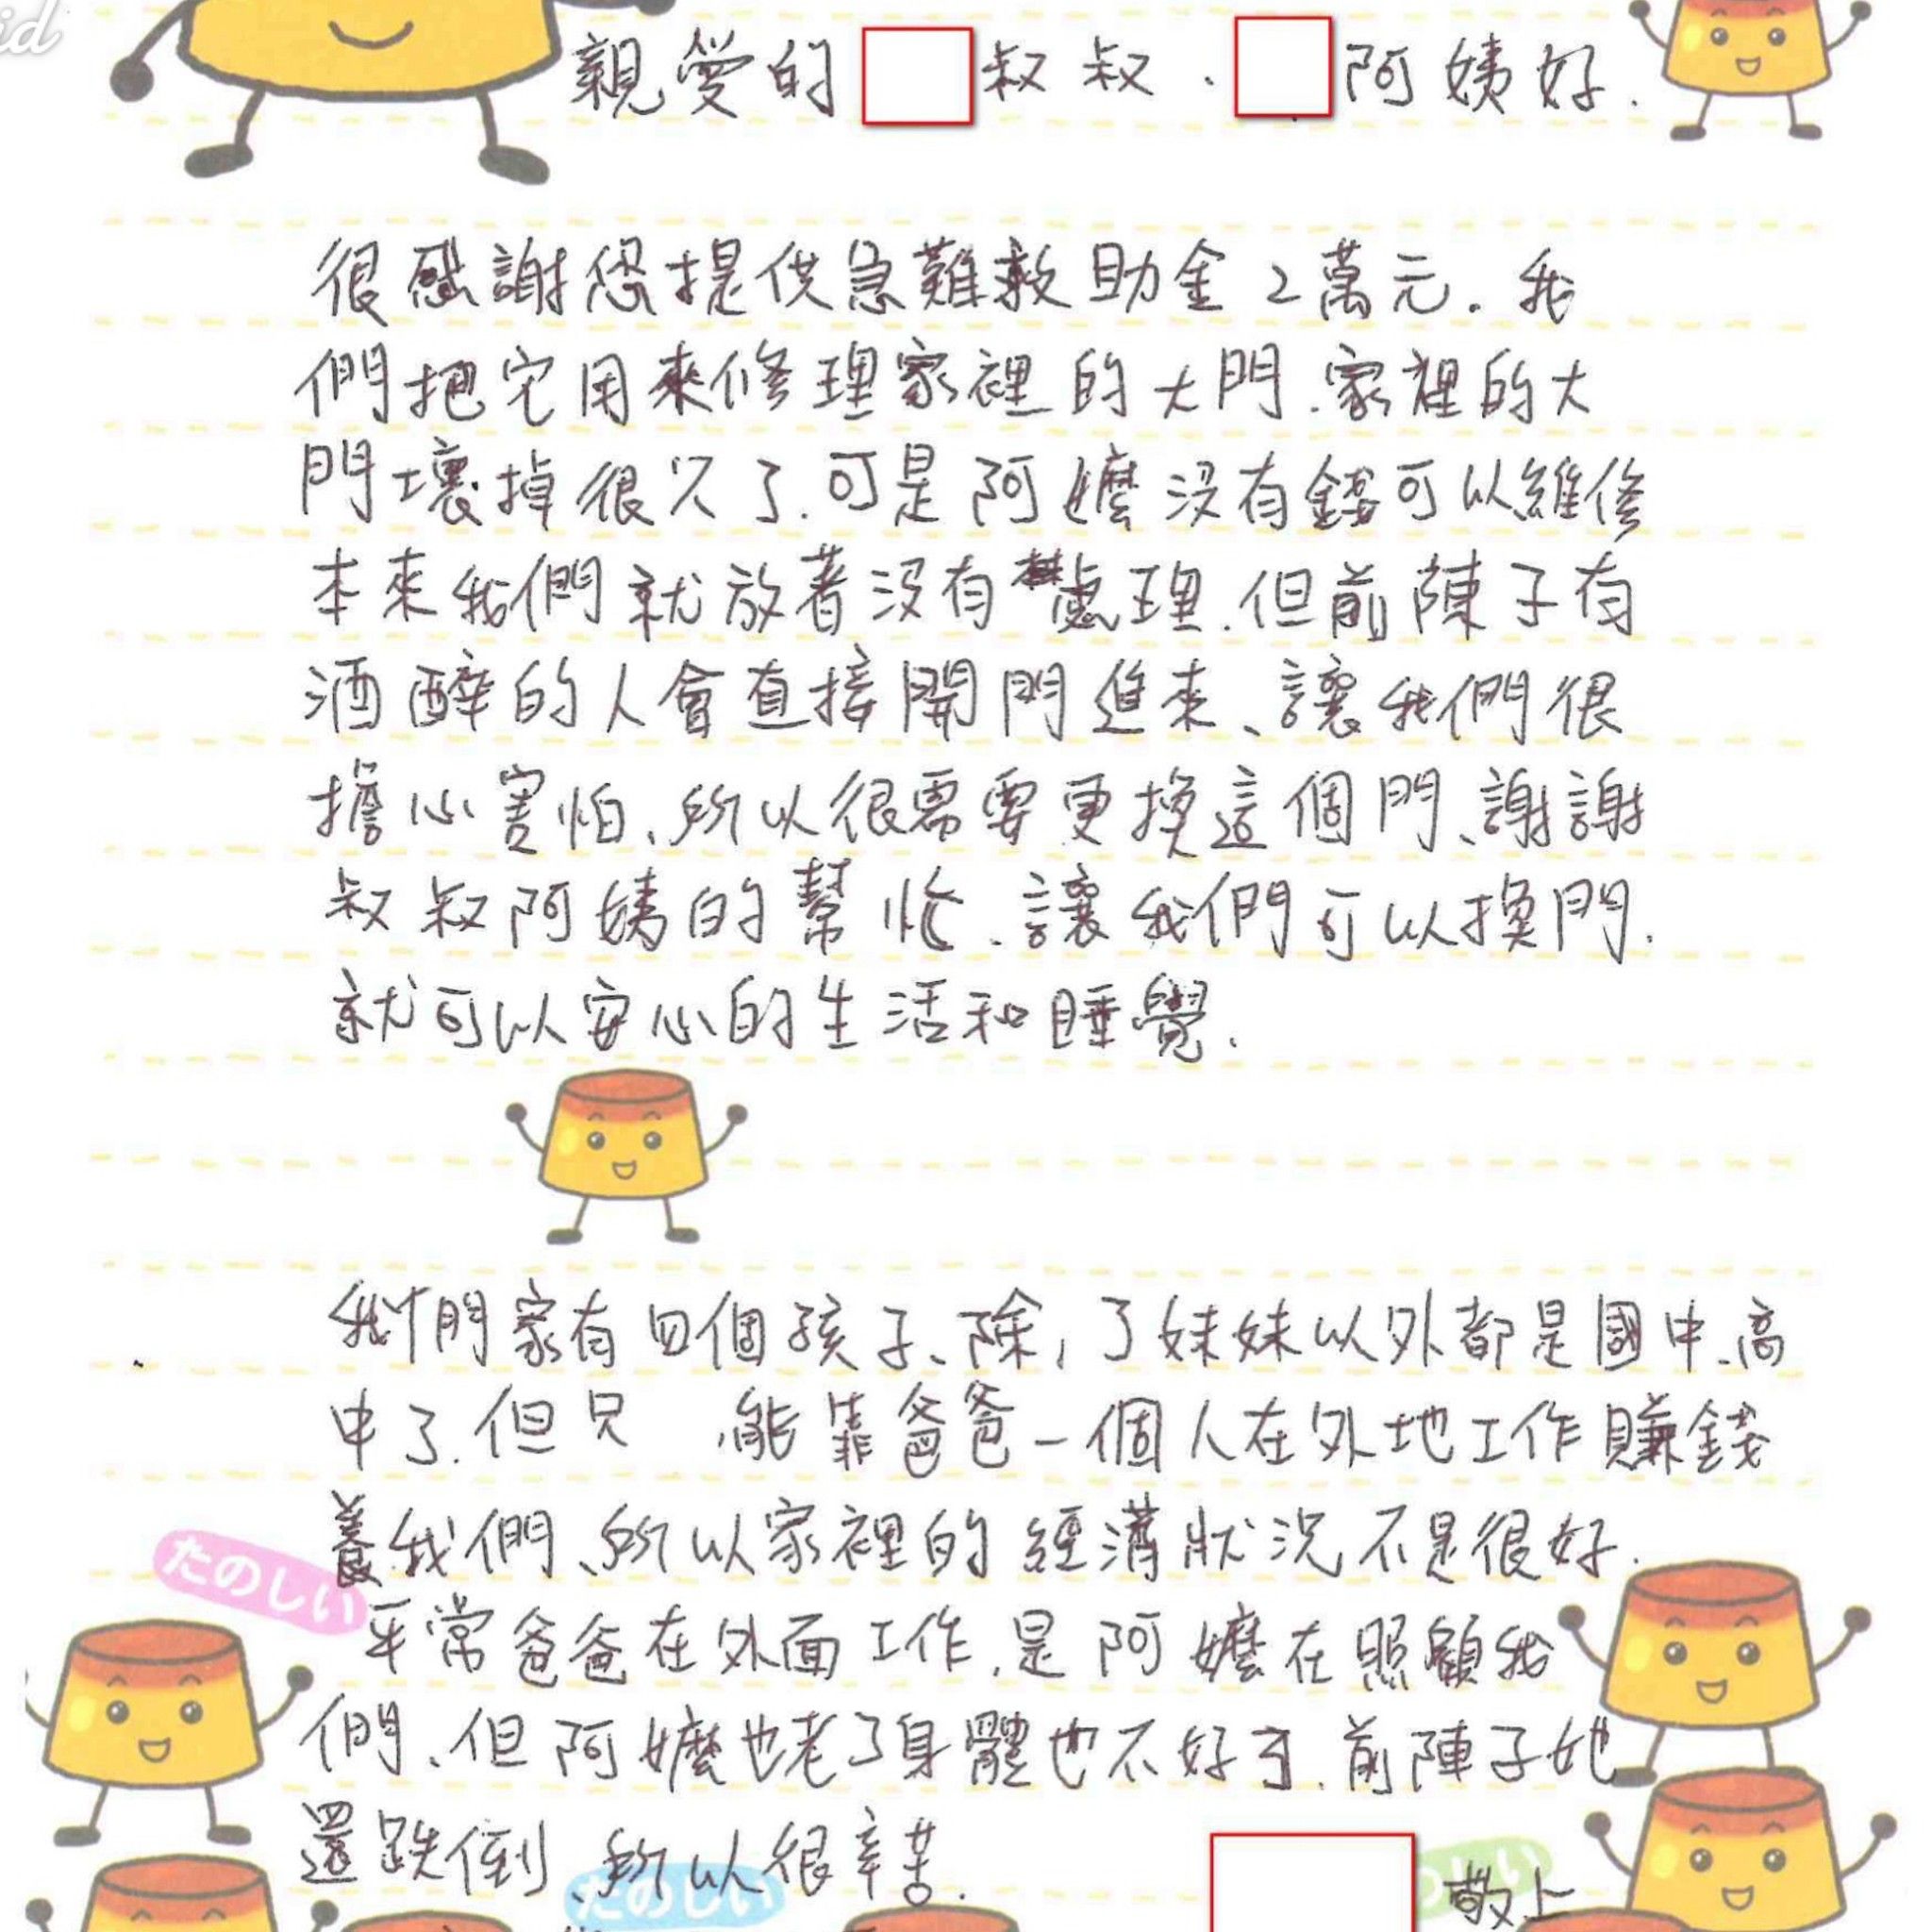 id
親愛的 叔叔.阿姨好.
很感謝您提供急難救助金2萬元.我
們把它用來修理家裡的大門.家裡的大
門壞掉很久了.可是阿嬤沒有錢可以維修
本來我們就放著沒有處理.但前陳子有
酒醉的人會直接開門進來、讓我們很
擔心害怕、所以很需要更換這個門、謝謝
叔叔阿姨的幫忙.讓我們可以換門.
就可以安心的生活和睡覺.
我們家有四個孩子、除了妹妹以外都是國中、高
中了.但只能靠爸爸一個人在外地工作賺錢
養我們、所以家裡的經濟狀況不是很好.
平常爸爸在外面工作.是阿嬤在照顧我
們、但阿嬤也老了身體也不好了.前陣子她
還跌倒、所以很辛苦.
敬上
たのしい
たのしい
のしい